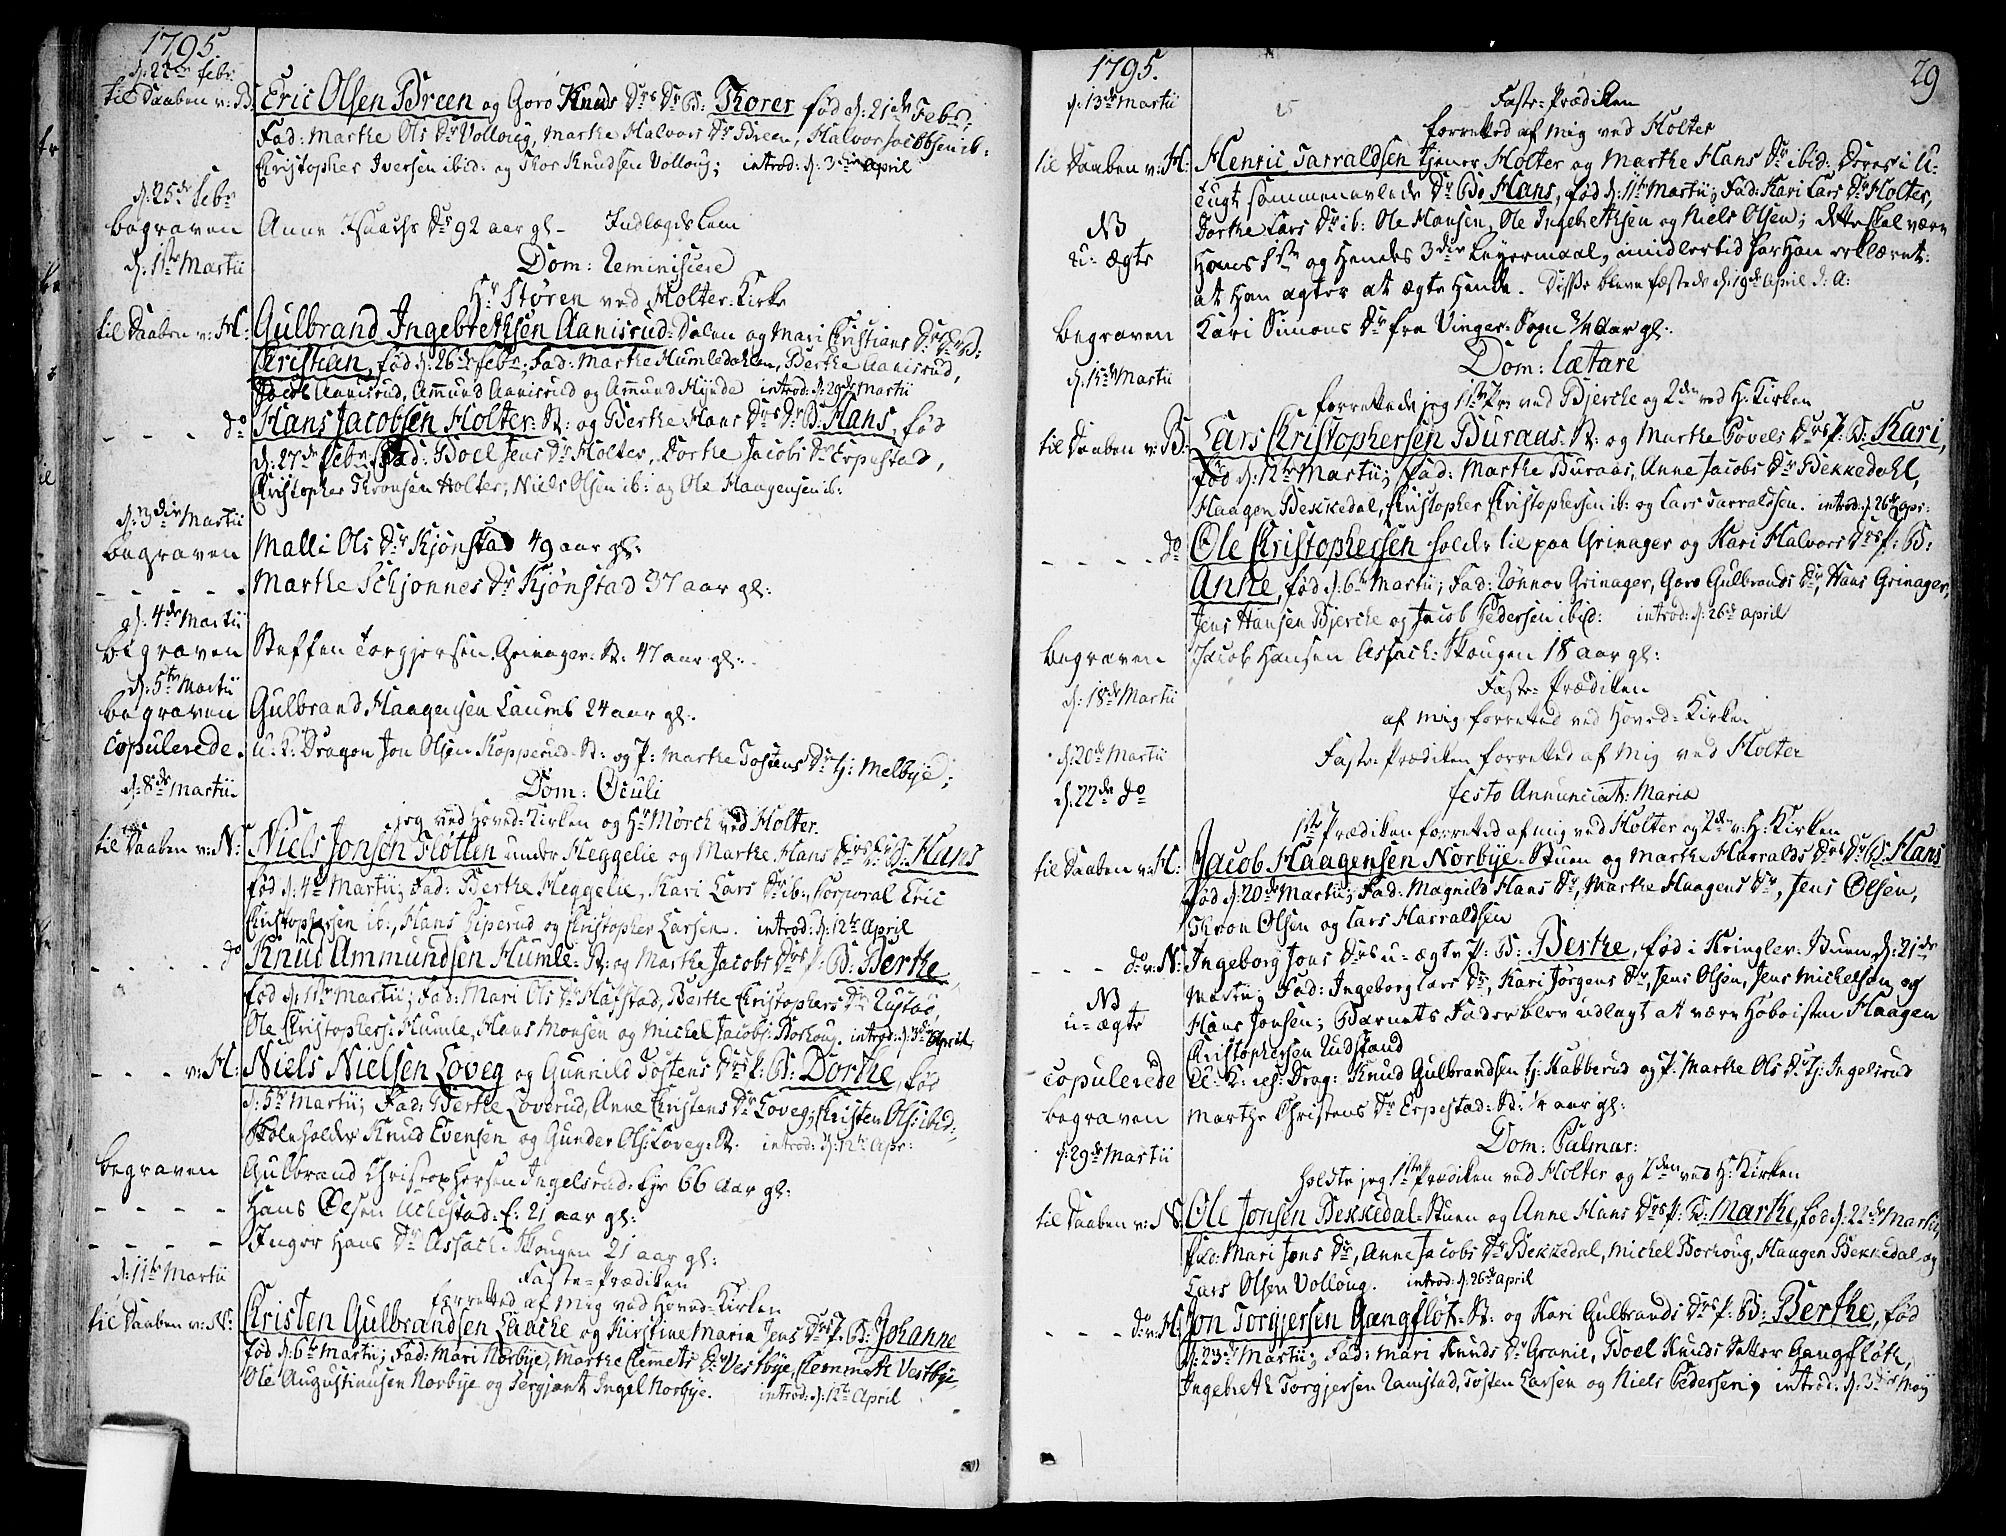 1795.
d: 22de febr:
til Daaben v: B: Eric Olsen Breen og Goro Knuds Drs Dr B: Thorer fød d: 21de Febr:
Fad: Marthe Ols Dr Volloug, Marthe Halvors Dr Breen, Halvor Jacobsen ib:
Christopher Iversen ibid: og Thor Knudsen Volloug; introd: d: 3die april
d: 25de febr
begraven Anne Isaachs Dr 92 aar gl. Indlagds Lem
d: 1ste Martii Dom: Reminiscere
Hr Støren ved Holter-Kirke
til Daaben v: H: Gulbrand Ingebrethsen Aanisrud-Dalen og Mari Christians Drs Dr B:
Christian, fød d: 26de febr; Fad: Marthe Humledahlen, Berthe Aanisrud,
Jacob Aanisrud, Amund Aanisrud og Amund Hynde introd: d: 29de Martii
- - - do Hans Jacobsen Holter-St: og Berthe Hans Drs Dr B: Hans, fød
d: 27de febr Fad: Boel Jens Dr Holter, Dorthe Jacobs Dr Erpestad,
Christopher Thronsen Holter; Niels Olsen ib: og Ole Haagensen ib:
d: 3die Martii
begraven Malli Ols Dr Kjønstad 49 aar gl:
- - - - - Marthe Schjonnes Dr Kjønstad 37 aar gl:
d: 4de Martii
begraven Steffen Torgjersen Grinager-St: 47 aar gl:
d: 5te Martii
begraven Gulbrand Haagensen Laumb 24 aar gl:
copulerede. U: K: Dragon Jon Olsen Kopperud-St: og P: Marthe Tostens Dr tj: Melbye;
d: 8de Martii Dom: Oculi
jeg ved Hoved-Kirken og Hr Mørch ved Holter.
til Daaben v: N: Niels Jonsen Fløtten under Heggelie og Marthe Hans Drs Dr B: Hans
fød d: 4de Martii; Fad: Berthe Heggelie, Kari Lars Dr ib:, Corporal Eric
Christophersen ib:, Hans Giperud og Christopher Larsen. introd: d: 12te April
- - - - do Knud Ammundsen Humle-St: og Marthe Jacobs Drs P: B: Berthe,
fød d: 1ste Martii; Fad: Mari Ols Dr Hafstad, Berthe Christophers Dr Rustad,
Ole Christophers: Humle, Hans Monsen og Michel Jacobs: Borchoug. introd: d: 3die April
- - - v: H: Niels Nielsen Loveg og Gunnild Tostens Drs P: B: Dorthe, fød
d: 5te Martii; Fad: Berthe Loverud, Anne Christens Dr Loveg, Christen Ols: ibid:,
Skoleholder Knud Evensen og Gunder Ols: Loveg-St. introd: d: 12te Apr:
begraven Gulbrand Christophersen Ingelsrud-Eje 66 aar gl:
- - - - Hans Olsen Achestad-E: 21 aar gl:
- - - - Inger Hans Dr Assach-Skougen 21 aar gl:
d: 11te Martii Faste-Prædiken
forretted af mig ved Hoved-Kirken
til Daaben v: N: Christen Gulbrandsen Laache og Kirstine Maria Jens Drs P: B: Johanne
fød d: 6te Martii; Fad: Mari Norbye, Marthe Clemets Dr Vestbye, Clemmeth Vestbye,
Ole Augustinusen Norbye og Sergjant Ingel Norbye. introd: d: 12te April
1795. 29
d: 13de Martii Faste-Prædiken
forretted af mig ved Holter
til Daaben v: H: Henric Tarraldsen tjener Holter og Marthe Hans Dr ibid: Deres i U-
tugt sammenavlede Dr B: Hans, fød d: 11te Martii; Fad: Kari Lars Dr Holter,
NB Dorthe Lars Dr ib: Ole Hansen, Ole Ingebrethsen og Niels Olsen; dette skal være
u-ægte Hans 1ste og Hendes 3die Leyermaal, imidlertid har Han erklæret:
at Han agter at ægte Hende. Disse bleve fæstede d: 19de April d: A:
begraven Kari Simons Dr fra Vinger-Sogn 3/4 aar gl:
d: 15de Martii Dom: Lætare
forrettede jeg 1ste Pr: ved Bjerche og 2den ved H: Kirken
til Daaben v: B: Lars Christophersen Buraas-St: og Marthe Povels Drs P: B: Kari,
fød d: 12te Martii; Fad: Marthe Buraas, Anne Jacobs Dr Bekkedahl,
Haagen Bekkedal, Christopher Christophersen ib: og Lars Tarraldsen. introd: d: 26de Apr:
- - - - do Ole Christophersen holder til paa Grinager og Kari Halvors Drs P: B:
Anne, fød d: 6te Martii; Fad: Rønnov Grinager, Goro Gulbrands Dr, Hans Grinager,
Jens Hansen Bjerche og Jacob Pedersen ibid: introd: d: 26de April
begraven Jacob Hansen Assach-Skougen 18 aar gl:
d: 18de Martii Faste-Prædiken
af mig forretted ved Hoved-Kirken
d: 20de Martii Faste-Prædiken forretted af mig ved Holter
d: 22de do Festo Annunciat: Maria
1ste Prædiken forretted af mig ved Holter og 2den v: H: Kirken
til Daaben v: H: Jacob Haagensen Norbye-Stuen og Marthe Harralds Drs Dr B: Hans
fød d: 20de Martii; Fad: Magnild Hans Dr, Marthe Haagens Dr, Jens Olsen,
Thron Olsen og Lars Harraldsen
- - - do v: N: Ingeborg Jons Drs u-ægte P: B: Berthe, fød i Kringler-Stuen d: 21de
NB Martii; Fad: Ingeborg Lars Dr, Kari Jørgens Dr, Jens Olsen, Jens Michelsen og
u-ægte Hans Jonsen; Barnets Fader blev udlagt at være Hoboisten Haagen
Christophersen Rudstand
copulerede U: K: ies: Drag: Knud Gulbrandsen tj: Habberud og P: Marthe Ols Dr tj: Ingelsrud
begraven Marthe Christens Dr Erpestad-St: 1/2 aar gl:
d: 29de Martii Dom: Palmar:
holdte jeg 1ste Prædiken ved Holter og 2den ved H: Kirken
til Daaben v: N: Ole Jonsen Bekkedal-Stuen og Anne Hans Drs P: B: Marthe, fød d: 22de Martii,
Fad: Mari Jens Dr, Anne Jacobs Dr Bekkedal, Michel Borchoug, Haagen Bekkedal og
Lars Olsen Volloug. introd: d: 26de April
- - - do v: H: Jon Torgjersen Gangfløt-St: og Kari Gulbrands Drs P: B: Berthe, fød
d: 23de Martii; Fad: Mari Knuds Dr Granie, Boel Knuds Datter Gangfløth,
Ingebreth Torgjersen Ramstad, Tosten Larsen og Niels Pedersen; introd: d: 3die May